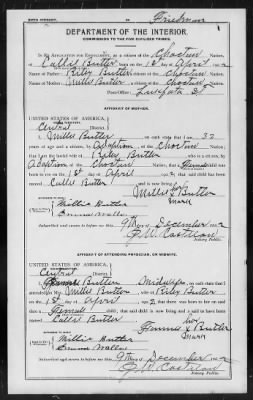 BIRTH AFFIDAVIT. Friedman
DEPARTMENT OF THE INTERIOR.
COMMISSION TO THE FIVE CIVILIZED TRIBES.
IN RE APPLICATION FOR ENROLLMENT, as a citizen of the Choctaw Nation,
of Callie Butler born on the 1st day of April 1902
Name of Father: Riley Butler a citizen of the Choctaw Nation.
Name of Mother: Millie Butler a citizen of the Choctaw Nation.
Post-Office:
AFFIDAVIT OF MOTHER.
UNITED STATES OF AMERICA,
Central District.
I, Millie Butler, on oath state that I am 32
years of age and a citizen by Adoption, of the Choctaw Nation;
that I am the lawful wife of Riley Butler, who is a citizen, by
Adoption of the Choctaw Nation; that a Female child
was born to me on 1st day of April, 1902, that said child has been
named Callie Butler, and is now living.
Millie her Butler
mark
WITNESSES TO MARK:
Subscribed and sworn to before me this 9th day of December 1902
Notary Public.
AFFIDAVIT OF ATTENDING PHYSICIAN, OR MIDWIFE.
UNITED STATES OF AMERICA,
Central District.
I, Butler, a midwife, on oath state that I
attended on Mrs. Millie Butler, wife of Riley Butler
on the 1st day of April, 1902; that there was born to her on said
date a Female child; that said child is now living and is said to have been
named Callie Butler.
her Butler
mark
WITNESSES TO MARK:
Subscribed and sworn to before me this 9th day of December 1902
Notary Public.